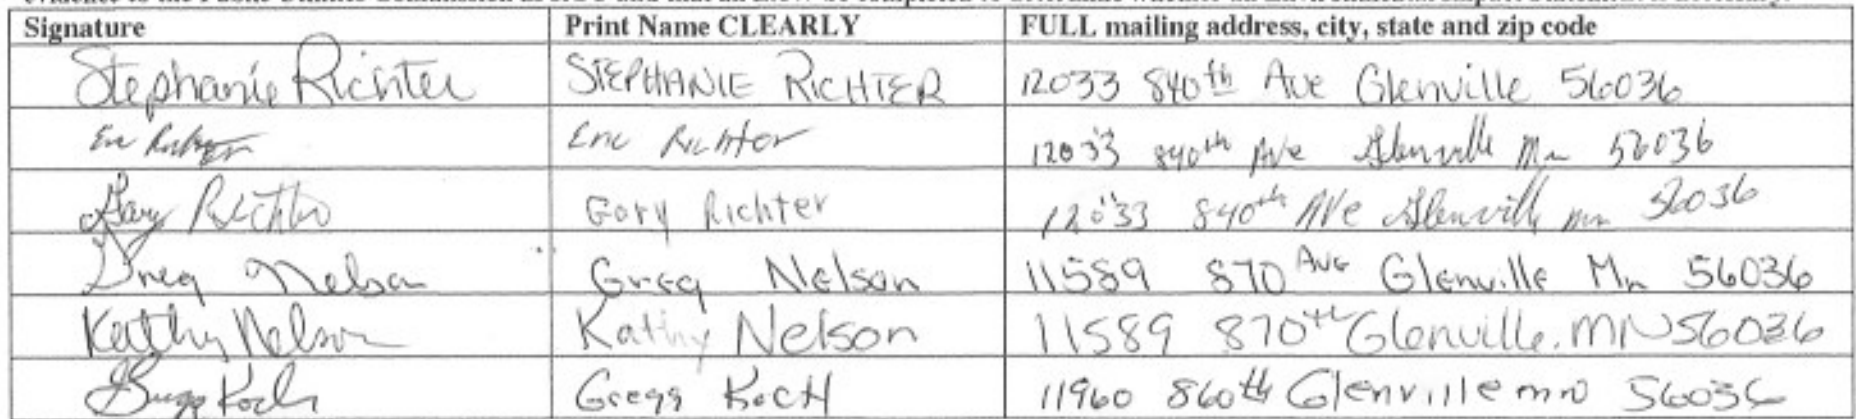 Signature Print Name CLEARLY FULL mailing address, city, state and zip code
Stephanie Richter STEPHANIE RICHTER 12033 840th Ave Glenville 56036
Eric Richter 12033 840th Ave Glenville Mn 56036
Gary Richter Gary Richter 12033 840th Ave Glenville mn 56036
Greg Nelson Greg Nelson 11589 870 Ave Glenville Mn 56036
Kathy Nelson Kathy Nelson 11589 870th Glenville. MN 56036
Gregg Koch Gregg KocH 11960 860th Glenville mn 56036